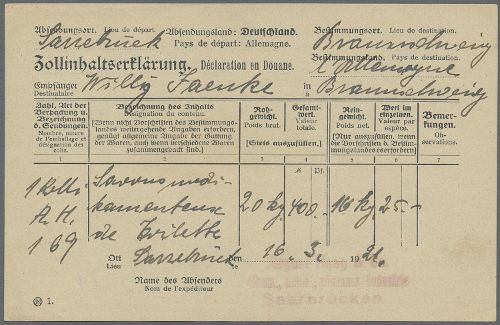 Absendungsort. Lieu de départ. Absendungsland: Deutschland. Bestimmungsort. Lieu de destination.
Sarrebruck Pays de départ: Allemagne. Braunschweig
Zollinhaltserklärung. Déclaration en Douane. Bestimmungsland. Pays de destination. Allemagne
Empfänger Willy Jaenke in Braunschweig
Destinataire
Zahl, Art der Verpackung u. Bezeichnung d. Sendungen.
Nombre, nature de l'emballage et désignation des colis.
1.
Bezeichnung des Inhalts
Désignation du contenu.
[Wenn nicht Vorschriften des Bestimmungslandes weitergehende Angaben erfordern, genügt allgemeine Angabe der Gattung der Waren, auch wenn verschiedene Waren zusammengepackt sind.]
2.
Rohgewicht.
Poids brut.
Gesamtwert.
Valeur totale.
[Stets auszufüllen.]
3. 4.
Reingewicht.
Poids net.
Wert im einzelnen.
Valeur par espèce.
[Nur auszufüllen, wenn die Vorschriften d. Bestimmungslandes es erfordern.]
5. 6.
Bemerkungen.
Observations.
7.
M. Pf.
1 Kolli Savons medi- 20 kg 400.- 16 kg 25.-
A.H. kamenteuse
169 de toilette
Ort Sarrebruck den 16. 3. 1921.
Lieu
Name des Absenders
Nom de l'expéditeur
Saarbrücken
1.